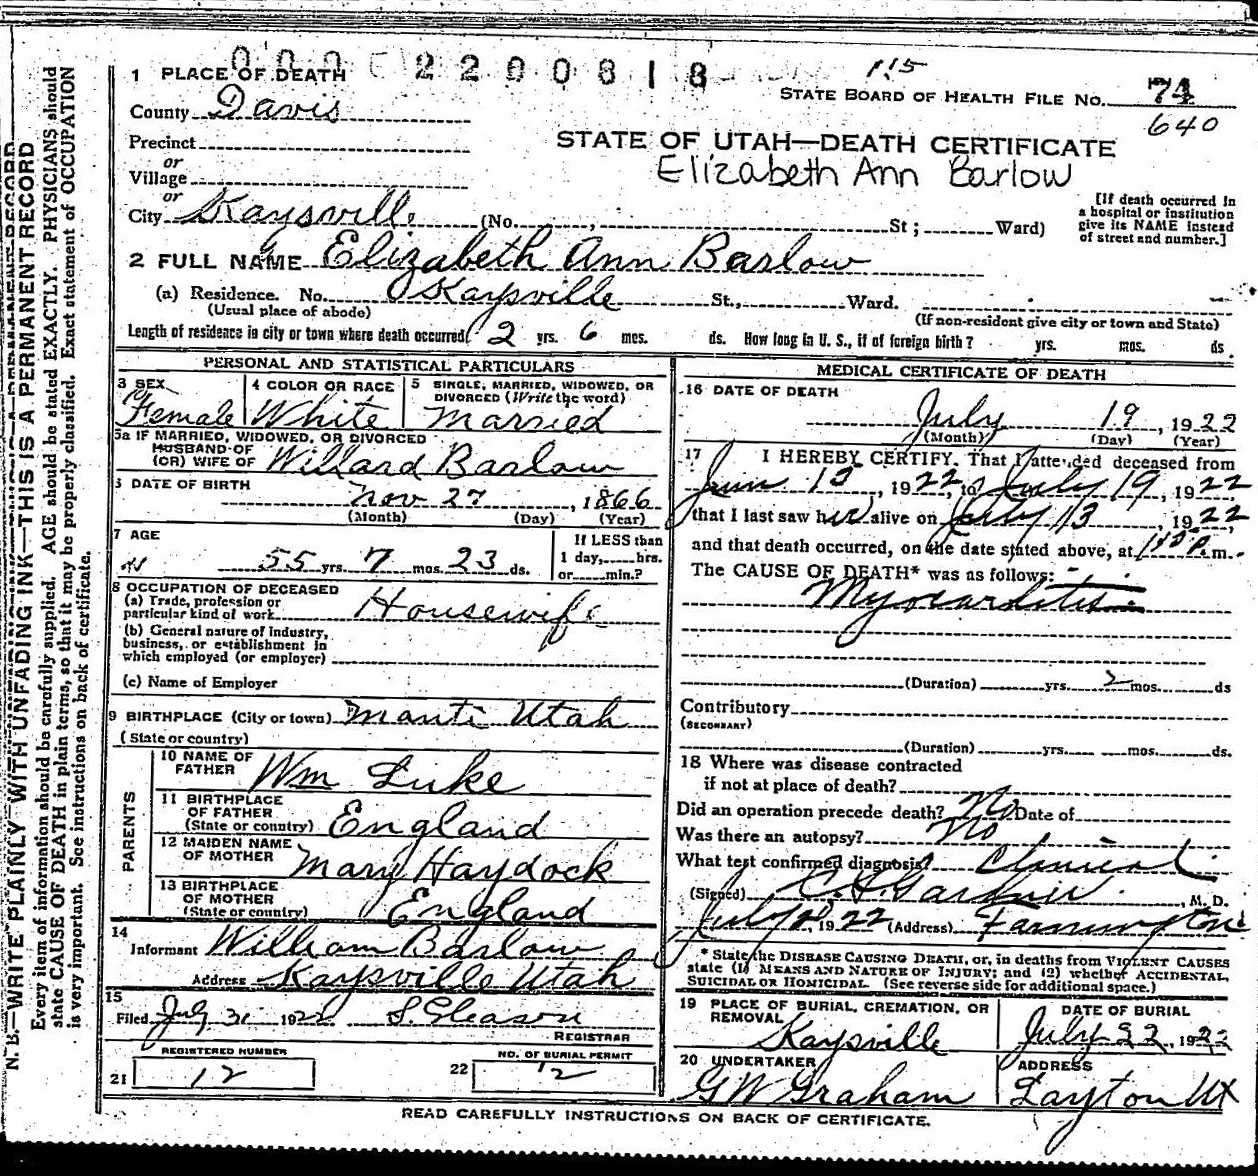 2200818
115
1 PLACE OF DEATH
STATE BOARD OF HEALTH FILE No. 74
County Davis
640
Precinct
STATE OF UTAH—DEATH CERTIFICATE
or
Elizabeth Ann Barlow
Village
or
City Kaysville (No. , St ; Ward)
[If death occurred in
a hospital or institution
give its NAME instead
of street and number.]
2 FULL NAME Elizabeth Ann Barlow
(a) Residence. No. Kaysville St., Ward.
(Usual place of abode)
(If non-resident give city or town and State)
Length of residence in city or town where death occurred 2 yrs. 6 mos. ds. How long in U. S., if of foreign birth ? yrs. mos. ds
PERSONAL AND STATISTICAL PARTICULARS
3 SEX
Female
4 COLOR OR RACE
White
5 SINGLE, MARRIED, WIDOWED, OR
DIVORCED (Write the word)
Married
5a IF MARRIED, WIDOWED, OR DIVORCED
HUSBAND OF
(OR) WIFE OF Willard Barlow
6 DATE OF BIRTH
Nov 27, 1866
(Month) (Day) (Year)
7 AGE
55 yrs. 7 mos. 23 ds.
If LESS than
1 day, hrs.
or min.?
8 OCCUPATION OF DECEASED
(a) Trade, profession or
particular kind of work Housewife
(b) General nature of Industry,
business, or establishment in
which employed (or employer)
(c) Name of Employer
9 BIRTHPLACE (City or town) Manti Utah
(State or country)
PARENTS
10 NAME OF
FATHER Wm Luke
11 BIRTHPLACE
OF FATHER
(State or country) England
12 MAIDEN NAME
OF MOTHER Mary Haydock
13 BIRTHPLACE
OF MOTHER
(State or country) England
14
Informant William Barlow
Address Kaysville Utah
15
Filed July 31 1922 S. Gleason
REGISTRAR
REGISTERED NUMBER
21 12
NO. OF BURIAL PERMIT
22 12
MEDICAL CERTIFICATE OF DEATH
16 DATE OF DEATH
July 19, 1922
(Month) (Day) (Year)
17 I HEREBY CERTIFY, That I attended deceased from
June 13, 1922, to July 19, 1922
that I last saw her alive on July 13, 1922,
and that death occurred, on the date stated above, at m.
The CAUSE OF DEATH* was as follows:
Myocarditis
(Duration) yrs. 2 mos. ds
Contributory
(SECONDARY)
(Duration) yrs. mos. ds.
18 Where was disease contracted
if not at place of death?
Did an operation precede death? No Date of
Was there an autopsy? No
What test confirmed diagnosis? Clinical
(Signed) Gardner, M. D.
July 1922 (Address) Farmington
* State the DISEASE CAUSING DEATH, or, in deaths from VIOLENT CAUSES
state (1) MEANS AND NATURE OF INJURY; and (2) whether ACCIDENTAL,
SUICIDAL OR HOMICIDAL. (See reverse side for additional space.)
19 PLACE OF BURIAL, CREMATION, OR
REMOVAL
Kaysville
DATE OF BURIAL
July 22, 1922
20 UNDERTAKER
G W Graham
ADDRESS
Layton Ut
READ CAREFULLY INSTRUCTIONS ON BACK OF CERTIFICATE.
N. B.—WRITE PLAINLY WITH UNFADING INK—THIS IS A PERMANENT RECORD
Every item of information should be carefully supplied. AGE should be stated EXACTLY. PHYSICIANS should
state CAUSE OF DEATH in plain terms, so that it may be properly classified. Exact statement of OCCUPATION
is very important. See instructions on back of certificate.